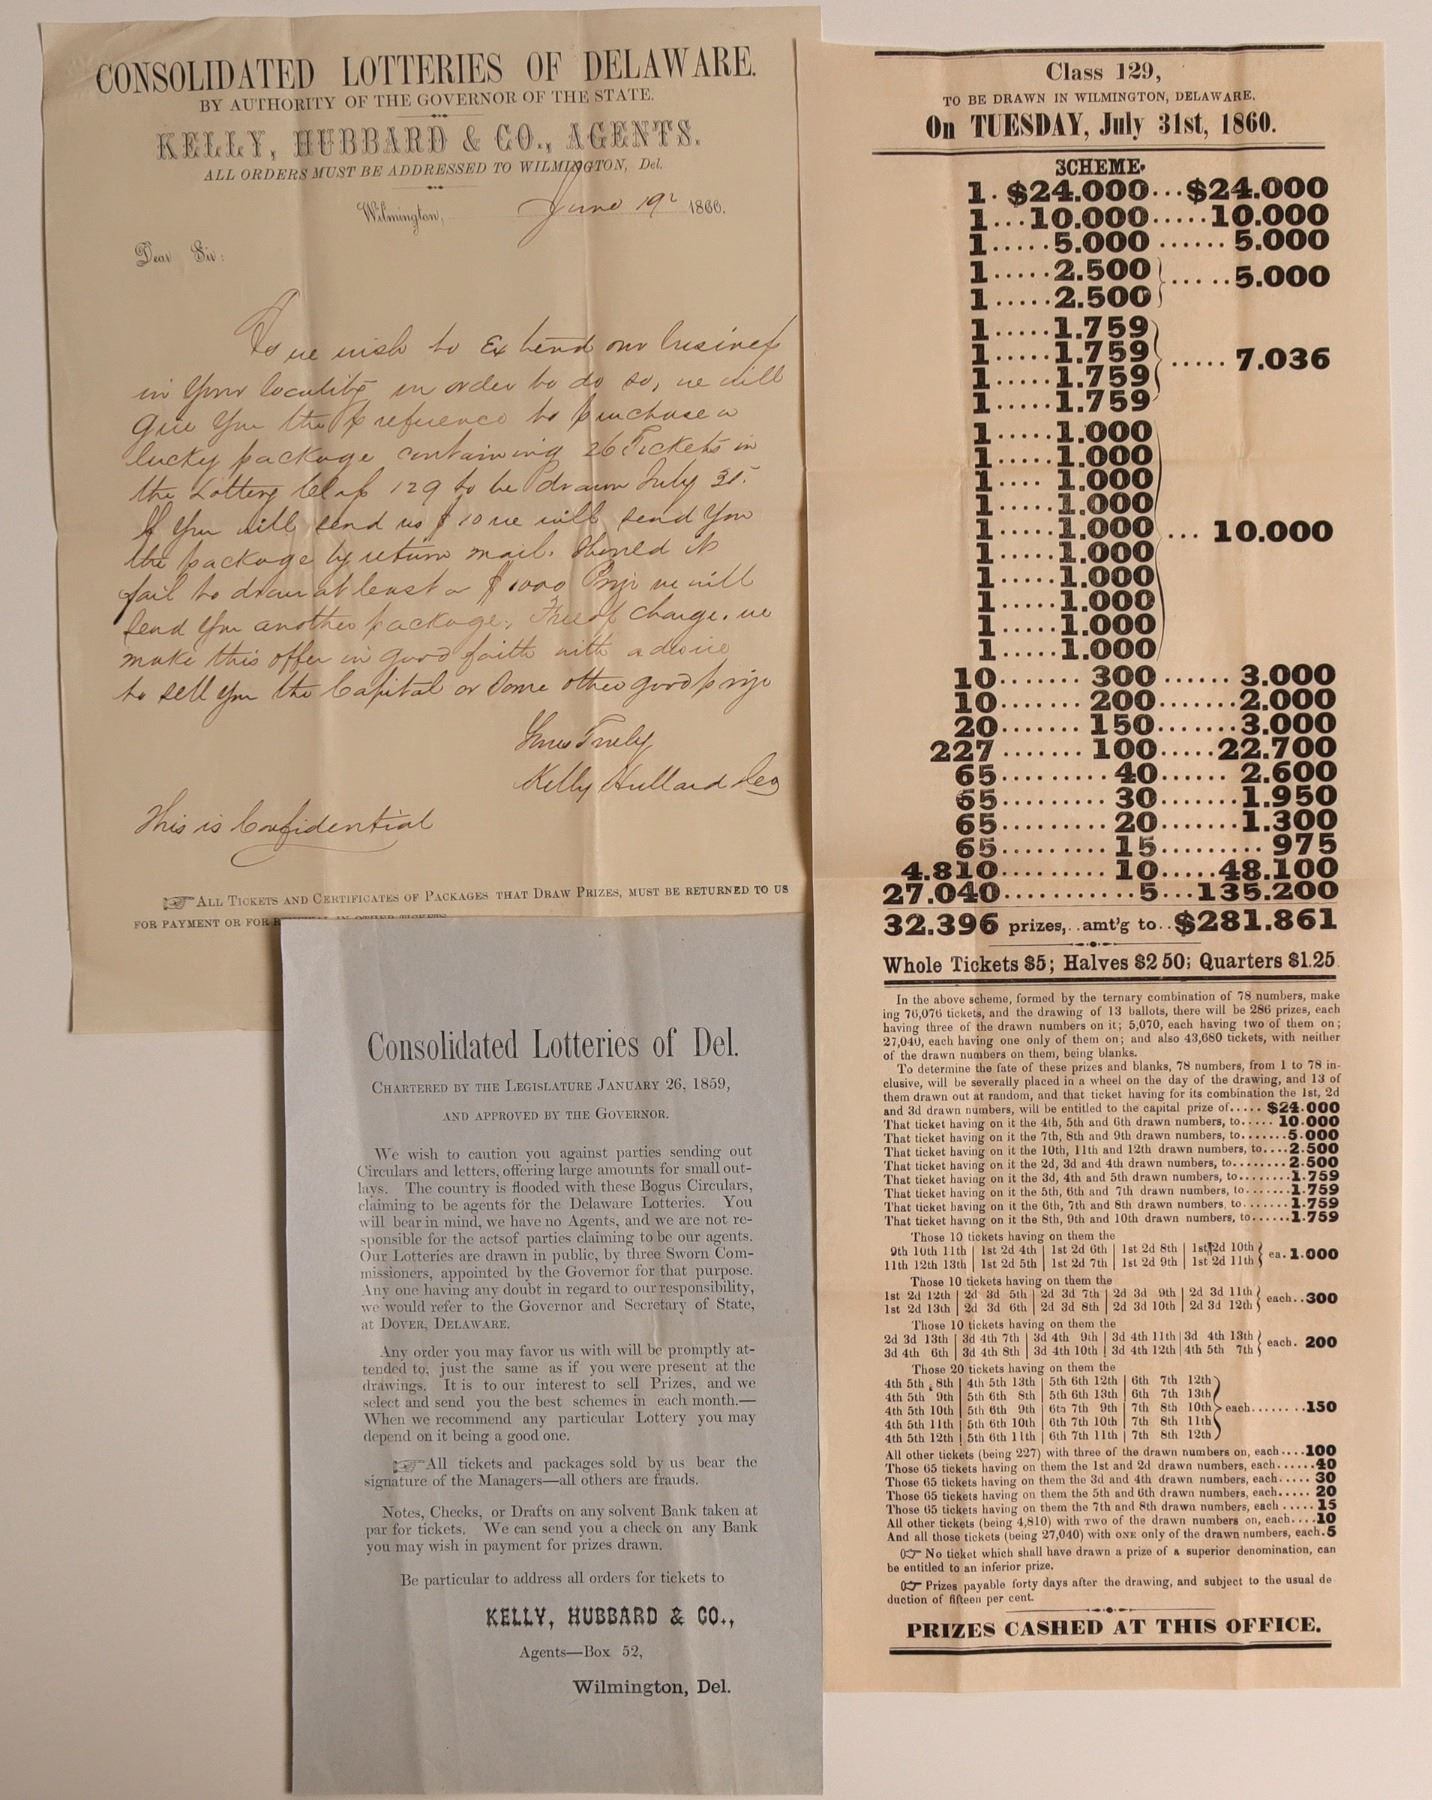 CONSOLIDATED LOTTERIES OF DELAWARE.
BY AUTHORITY OF THE GOVERNOR OF THE STATE.
KELLY, HUBBARD & CO., AGENTS.
ALL ORDERS MUST BE ADDRESSED TO WILMINGTON, Del.
Wilmington, June 19 1860.
Dear Sir:
As we wish to Extend our business
in Your locality in order to do so, we will
Give You the preference to purchase a
lucky package containing 26 Tickets in
the Lottery Class 129 to be Drawn July 31.
If You will send us $10 we will send You
the package by return mail. Should it
fail to draw at least a $1000 Prize we will
send You another package, Free of charge. we
make this offer in good faith with a desire
to sell You the Capital or some other good prize
Yours Truely
Kelly Hubbard & Co
This is Confidential
ALL TICKETS AND CERTIFICATES OF PACKAGES THAT DRAW PRIZES, MUST BE RETURNED TO US
FOR PAYMENT OR FOR RENEWAL IN OTHER TICKETS
Consolidated Lotteries of Del.
CHARTERED BY THE LEGISLATURE JANUARY 26, 1859,
AND APPROVED BY THE GOVERNOR.
We wish to caution you against parties sending out
Circulars and letters, offering large amounts for small out-
lays. The country is flooded with these Bogus Circulars,
claiming to be agents for the Delaware Lotteries. You
will bear in mind, we have no Agents, and we are not re-
sponsible for the actsof parties claiming to be our agents.
Our Lotteries are drawn in public, by three Sworn Com-
missioners, appointed by the Governor for that purpose.
Any one having any doubt in regard to our responsibility,
we would refer to the Governor and Secretary of State,
at DOVER, DELAWARE.
Any order you may favor us with will be promptly at-
tended to, just the same as if you were present at the
drawings. It is to our interest to sell Prizes, and we
select and send you the best schemes in each month.—
When we recommend any particular Lottery you may
depend on it being a good one.
All tickets and packages sold by us bear the
signature of the Managers—all others are frauds.
Notes, Checks, or Drafts on any solvent Bank taken at
par for tickets. We can send you a check on any Bank
you may wish in payment for prizes drawn.
Be particular to address all orders for tickets to
KELLY, HUBBARD & CO.,
Agents—Box 52,
Wilmington, Del.
Class 129,
TO BE DRAWN IN WILMINGTON, DELAWARE,
On TUESDAY, July 31st, 1860.
SCHEME.
1. $24.000...$24.000
1...10.000.....10.000
1.....5.000......5.000
1.....2.500
1.....2.500 .....5.000
1.....1.759
1.....1.759
1.....1.759
1.....1.759 .....7.036
1.....1.000
1.....1.000
1....1.000
1.....1.000
1.....1.000
1.....1.000
1.....1.000
1.....1.000
1.....1.000
1.....1.000 ...10.000
10.......300......3.000
10.......200.......2.000
20.......150.......3.000
227.......100.....22.700
65.........40......2.600
65.........30.......1.950
65.........20.......1.300
65.........15.........975
4.810.........10.....48.100
27.040..........5...135.200
32.396 prizes,..amt'g to..$281.861
Whole Tickets $5; Halves $2 50; Quarters $1.25
In the above scheme, formed by the ternary combination of 78 numbers, mak
ing 76,076 tickets, and the drawing of 13 ballots, there will be 286 prizes, each
having three of the drawn numbers on it; 5,070, each having two of them on;
27,040, each having one only of them on; and also 43,680 tickets, with neither
of the drawn numbers on them, being blanks.
To determine the fate of these prizes and blanks, 78 numbers, from 1 to 78 in-
clusive, will be severally placed in a wheel on the day of the drawing, and 13 of
them drawn out at random, and that ticket having for its combination the 1st, 2d
and 3d drawn numbers, will be entitled to the capital prize of..... $24.000
That ticket having on it the 4th, 5th and 6th drawn numbers, to..... 10.000
That ticket having on it the 7th, 8th and 9th drawn numbers, to.......5.000
That ticket having on it the 10th, 11th and 12th drawn numbers, to....2.500
That ticket having on it the 2d, 3d and 4th drawn numbers, to........2.500
That ticket having on it the 3d, 4th and 5th drawn numbers, to........1.759
That ticket having on it the 5th, 6th and 7th drawn numbers, to.......1.759
That ticket having on it the 6th, 7th and 8th drawn numbers, to.......1.759
That ticket having on it the 8th, 9th and 10th drawn numbers, to......1.759
Those 10 tickets having on them the
9th 10th 11th | 1st 2d 4th | 1st 2d 6th | 1st 2d 8th | 1st 2d 10th
11th 12th 13th | 1st 2d 5th | 1st 2d 7th | 1st 2d 9th | 1st 2d 11th } ea. 1.000
Those 10 tickets having on them the
1st 2d 12th | 2d 3d 5th | 2d 3d 7th | 2d 3d 9th | 2d 3d 11th
1st 2d 13th | 2d 3d 6th | 2d 3d 8th | 2d 3d 10th | 2d 3d 12th } each..300
Those 10 tickets having on them the
2d 3d 13th | 3d 4th 7th | 3d 4th 9th | 3d 4th 11th | 3d 4th 13th
3d 4th 6th | 3d 4th 8th | 3d 4th 10th | 3d 4th 12th | 4th 5th 7th } each. 200
Those 20 tickets having on them the
4th 5th 8th | 4th 5th 13th | 5th 6th 12th | 6th 7th 12th
4th 5th 9th | 5th 6th 8th | 5th 6th 13th | 6th 7th 13th
4th 5th 10th | 5th 6th 9th | 6th 7th 9th | 7th 8th 10th } each........150
4th 5th 11th | 5th 6th 10th | 6th 7th 10th | 7th 8th 11th
4th 5th 12th | 5th 6th 11th | 6th 7th 11th | 7th 8th 12th
All other tickets (being 227) with three of the drawn numbers on, each....100
Those 65 tickets having on them the 1st and 2d drawn numbers, each......40
Those 65 tickets having on them the 3d and 4th drawn numbers, each..... 30
Those 65 tickets having on them the 5th and 6th drawn numbers, each..... 20
Those 65 tickets having on them the 7th and 8th drawn numbers, each ..... 15
All other tickets (being 4,810) with TWO of the drawn numbers on, each....10
And all those tickets (being 27,040) with ONE only of the drawn numbers, each.5
No ticket which shall have drawn a prize of a superior denomination, can
be entitled to an inferior prize.
Prizes payable forty days after the drawing, and subject to the usual de
duction of fifteen per cent.
PRIZES CASHED AT THIS OFFICE.